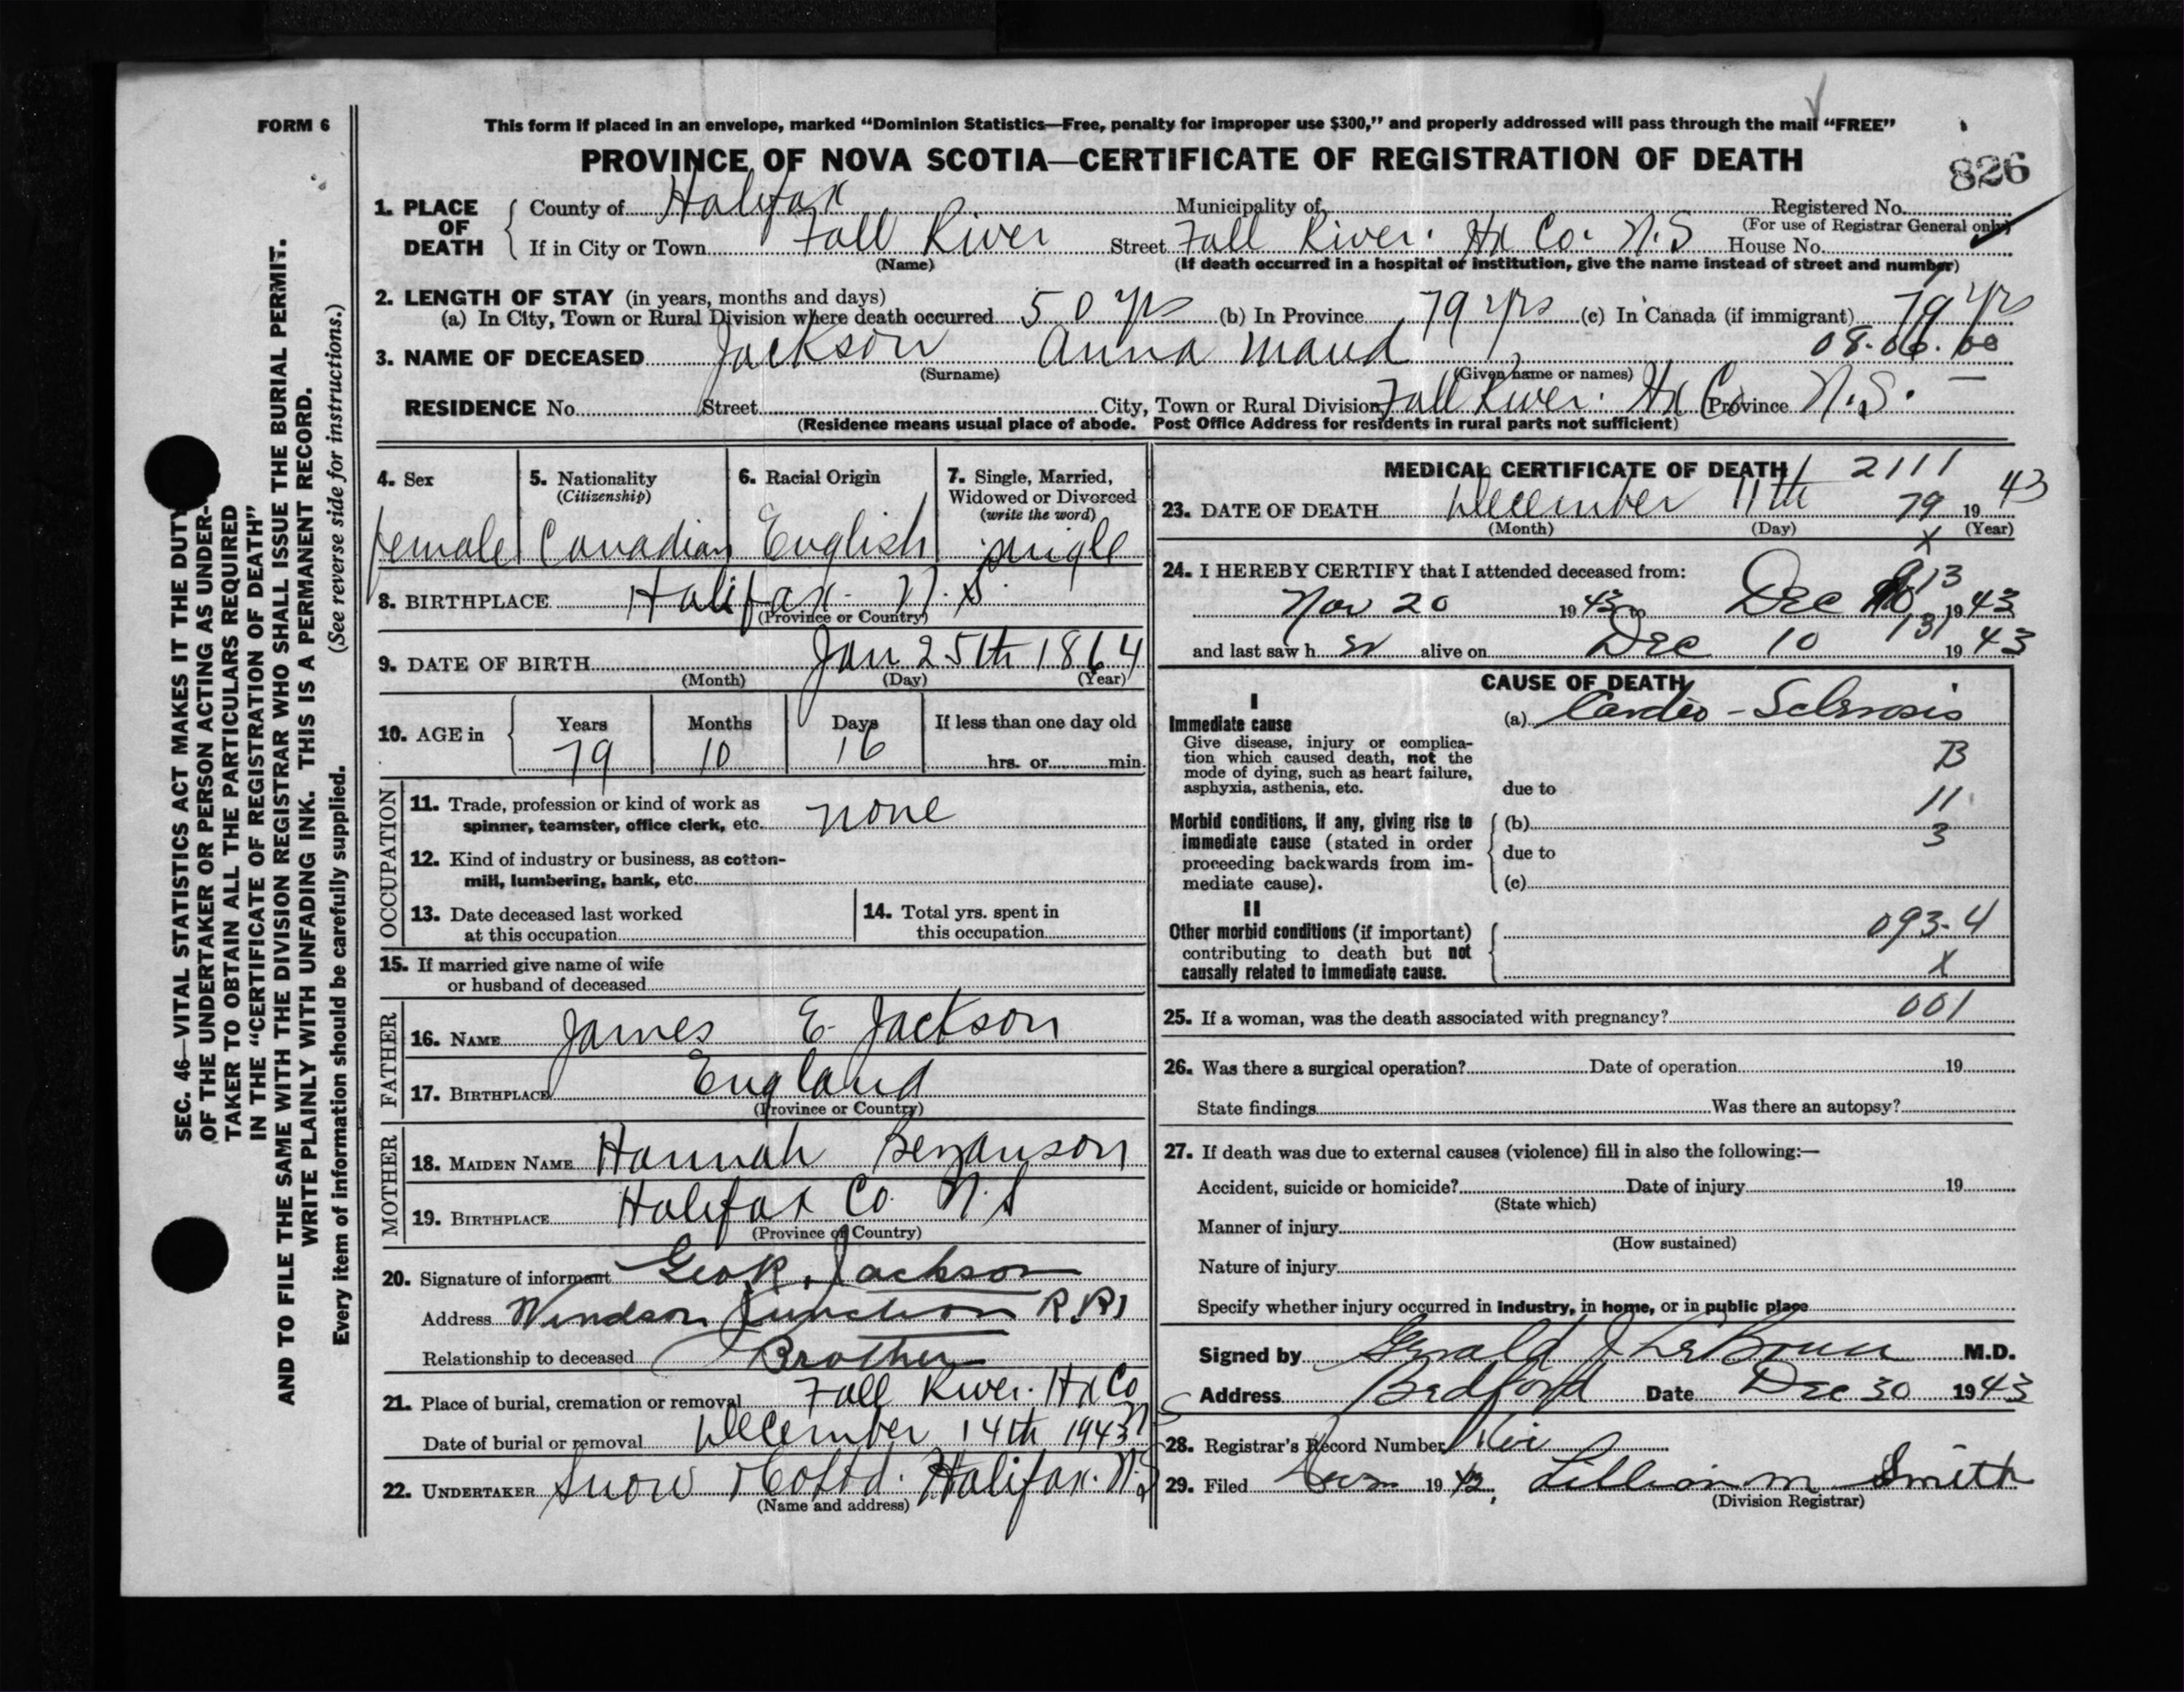 FORM 6
This form if placed in an envelope, marked “Dominion Statistics—Free, penalty for improper use $300,” and properly addressed will pass through the mail “FREE”
PROVINCE OF NOVA SCOTIA—CERTIFICATE OF REGISTRATION OF DEATH
826
1. PLACE OF DEATH
County of Halifax Municipality of Registered No.
(For use of Registrar General only)
If in City or Town Fall River Street Fall River. Hx Co. N.S House No.
(Name) (If death occurred in a hospital or institution, give the name instead of street and number)
2. LENGTH OF STAY (in years, months and days)
(a) In City, Town or Rural Division where death occurred 50 yrs (b) In Province 79 yrs (c) In Canada (if immigrant) 79 yrs
08.06.00
3. NAME OF DECEASED Jackson Anna Maud
(Surname) (Given name or names)
RESIDENCE No. Street City, Town or Rural Division Fall River. Hx Co Province N.S.
(Residence means usual place of abode. Post Office Address for residents in rural parts not sufficient)
4. Sex
female
5. Nationality
(Citizenship)
Canadian
6. Racial Origin
English
7. Single, Married,
Widowed or Divorced
(write the word)
single
8. BIRTHPLACE Halifax. N.S
(Province or Country)
9. DATE OF BIRTH Jan 25th 1864
(Month) (Day) (Year)
10. AGE in
Years Months Days If less than one day old
79 10 16 hrs. or min.
OCCUPATION
11. Trade, profession or kind of work as
spinner, teamster, office clerk, etc. none
12. Kind of industry or business, as cotton-
mill, lumbering, bank, etc.
13. Date deceased last worked
at this occupation
14. Total yrs. spent in
this occupation
15. If married give name of wife
or husband of deceased
FATHER
16. NAME James E. Jackson
17. BIRTHPLACE England
(Province or Country)
MOTHER
18. MAIDEN NAME Hannah Bezanson
19. BIRTHPLACE Halifax Co N.S
(Province or Country)
20. Signature of informant Geo R. Jackson
Address Windsor Junction R.R1
Relationship to deceased Brother
21. Place of burial, cremation or removal Fall River. Hx Co NS
Date of burial or removal December 14th 1943
22. UNDERTAKER Snow & Co Ltd. Halifax. N.S
(Name and address)
MEDICAL CERTIFICATE OF DEATH 2111
23. DATE OF DEATH December 11th 79 1943
(Month) (Day) (Year)
X
24. I HEREBY CERTIFY that I attended deceased from:
913
Nov 20 1943 to Dec 10 1943
131
and last saw her alive on Dec 10 1943
CAUSE OF DEATH
I
Immediate cause (a) Cardio-Sclerosis
Give disease, injury or complica-
tion which caused death, not the
mode of dying, such as heart failure,
asphyxia, asthenia, etc. due to
B
11
3
Morbid conditions, if any, giving rise to (b)
immediate cause (stated in order
proceeding backwards from im- due to
mediate cause). (c)
II
Other morbid conditions (if important) 093-4
contributing to death but not
causally related to immediate cause. X
25. If a woman, was the death associated with pregnancy? 001
26. Was there a surgical operation? Date of operation 19
State findings Was there an autopsy?
27. If death was due to external causes (violence) fill in also the following:—
Accident, suicide or homicide? Date of injury 19
(State which)
Manner of injury
(How sustained)
Nature of injury
Specify whether injury occurred in industry, in home, or in public place
Signed by Gerald J. LeBrun M.D.
Address Bedford Date Dec 30 1943
28. Registrar's Record Number
29. Filed 1943, Lillian M Smith
(Division Registrar)
SEC. 46—VITAL STATISTICS ACT MAKES IT THE DUTY
OF THE UNDERTAKER OR PERSON ACTING AS UNDER-
TAKER TO OBTAIN ALL THE PARTICULARS REQUIRED
IN THE “CERTIFICATE OF REGISTRATION OF DEATH”
AND TO FILE THE SAME WITH THE DIVISION REGISTRAR WHO SHALL ISSUE THE BURIAL PERMIT.
WRITE PLAINLY WITH UNFADING INK. THIS IS A PERMANENT RECORD.
Every item of information should be carefully supplied. (See reverse side for instructions.)